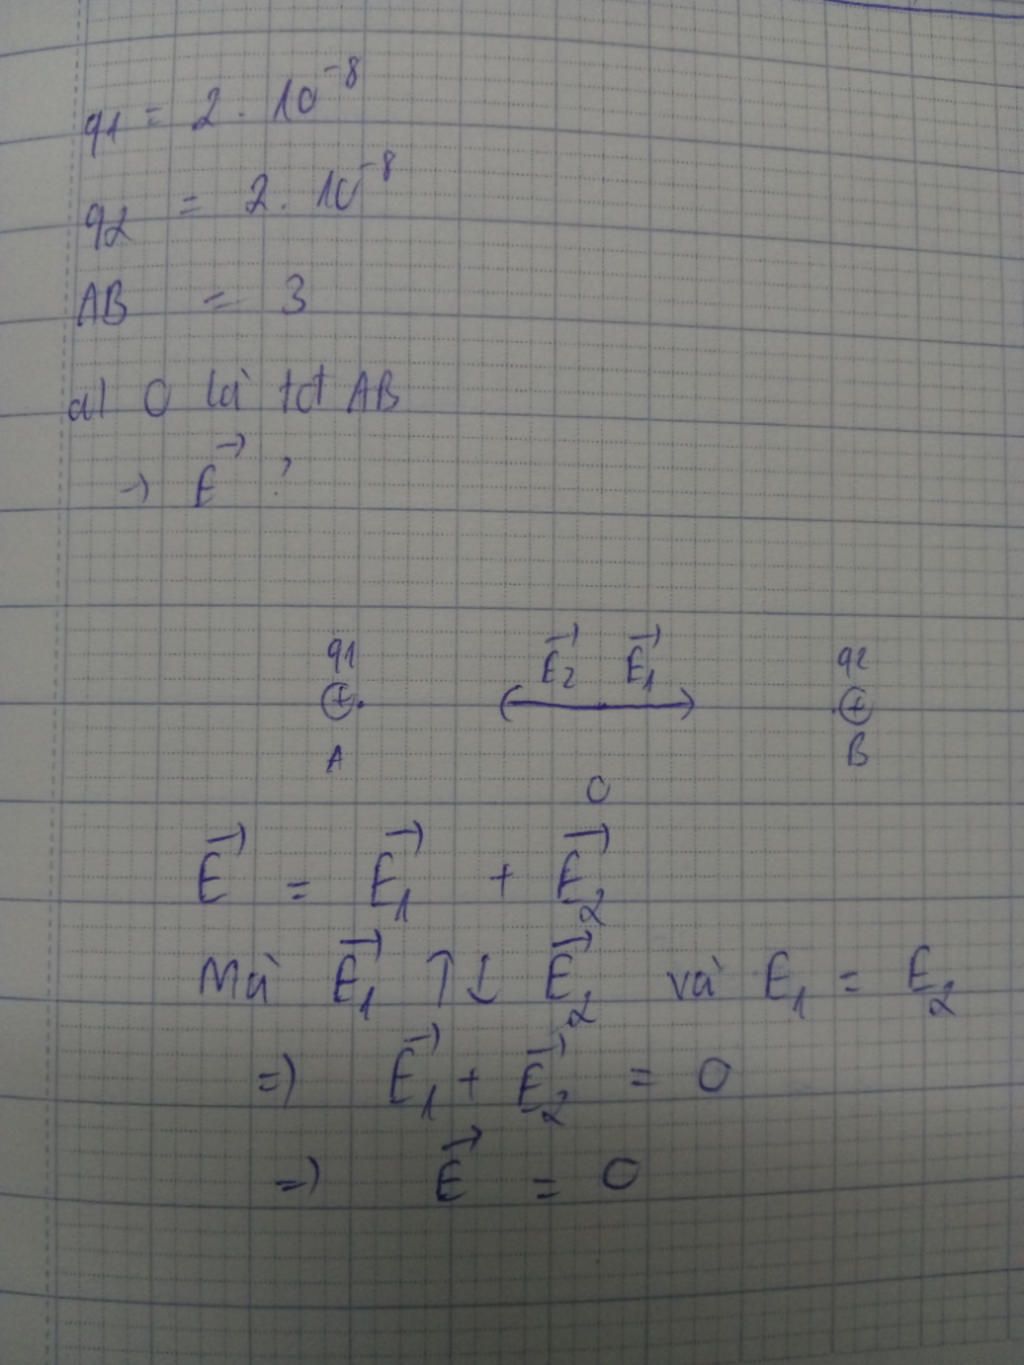 q1 = 2 . 10⁻⁸
q2 = 2 . 10⁻⁸
AB = 3
a) O là tđ AB
→ E⃗ ?
q1 E⃗2 E⃗1 q2
+ +
A O B
E⃗ = E⃗1 + E⃗2
Mà E⃗1 ↑↓ E⃗2 và E1 = E2
=) E⃗1 + E⃗2 = 0
=) E⃗ = 0